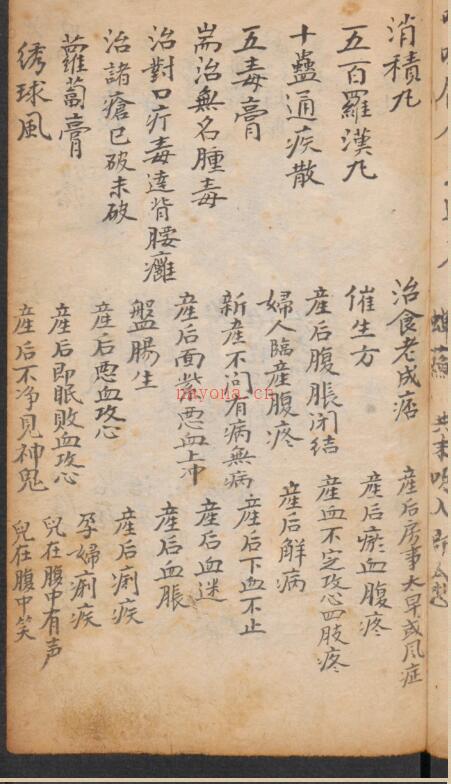 消積九
五百羅漢九
十蠱通疾散
五毒膏
耑治無名腫毒
治對口疔毒達背腰癰
治諸瘡已破未破
蘿蔔膏
绣球風
治食老成痞
催生方
産后腹脹闭结
婦人臨産腹疼
新産不问有病無病
産后面紫恶血上冲
盤腸生
産后恶血攻心
産后即眠敗血攻心
産后不净見神鬼
産后房事太早或风症
産后瘀血腹疼
産血不定攻心四肢疼
産后解病
産后下血不止
産后血迷
産后血脹
産后痢疾
孕婦痢疾
兒在腹中有声
兒在腹中笑
nayona.cn